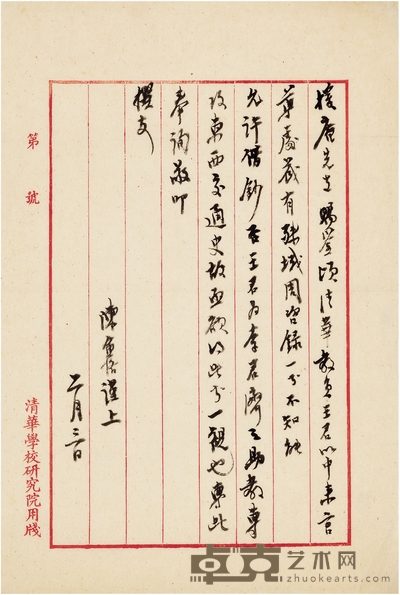 援庵先生賜鑒頃清華教員王君以中来言
尊處藏有殊域周咨録一書不知能
允許借鈔否王君為李君濟之助教專
攻東西交通史故亟欲得此書一觀也專此
奉詢敬叩
撰安
陳寅恪謹上
二月三日
第 號
清華學校研究院用牋
卓克艺术网
zhuokearts.com